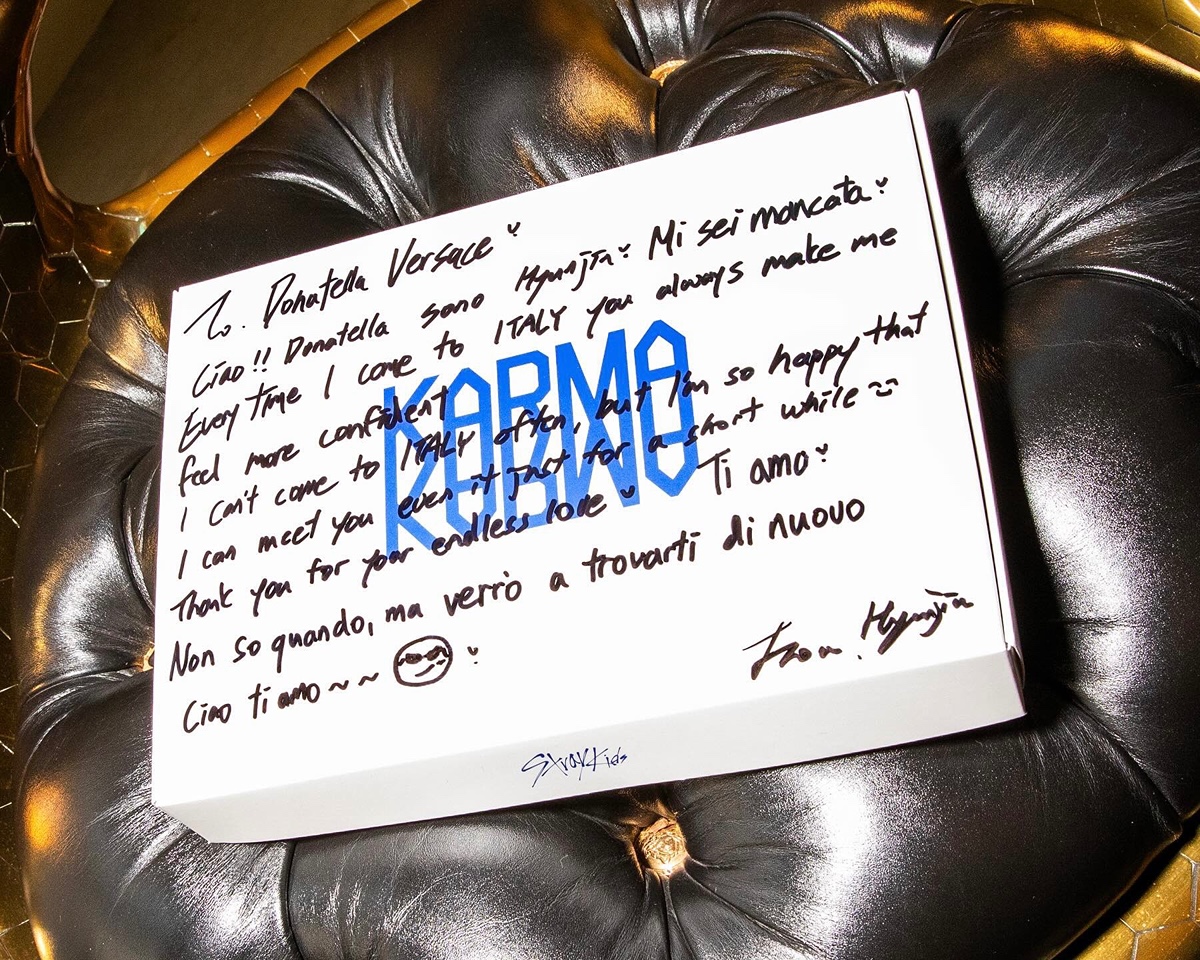 To. Donatella Versace
Ciao!! Donatella sono Hyunjin Mi sei mancata
Every time I come to ITALY you always make me
feel more confident
I can't come to ITALY often, but I'm so happy that
I can meet you even it just for a short while
Thank you for your endless love Ti amo
Non so quando, ma verrò a trovarti di nuovo
Ciao ti amo ~ ~
From. Hyunjin
KARMA
Stray Kids